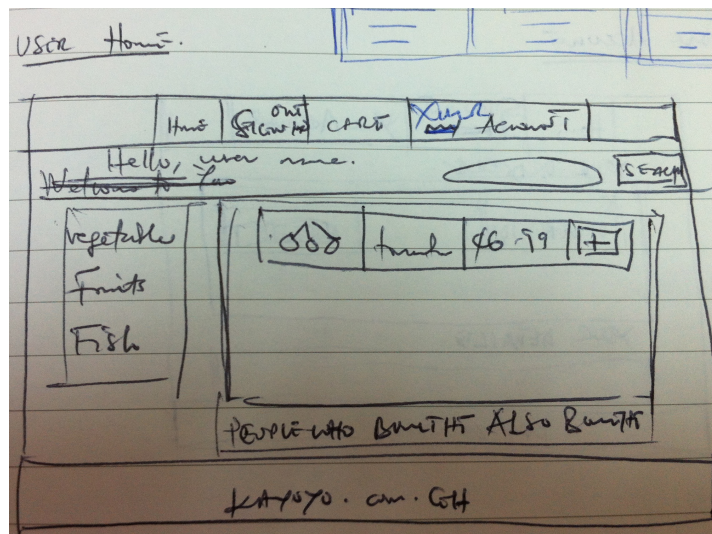 USER Home.
Home Sign out CART Account
Hello, user name.
Welcome to You
SEACH
Vegetable
tomato $6.99 +
Fruits
Fish
PEOPLE WHO BOUGHT ALSO BOUGHT
KAYOYO.com.GH